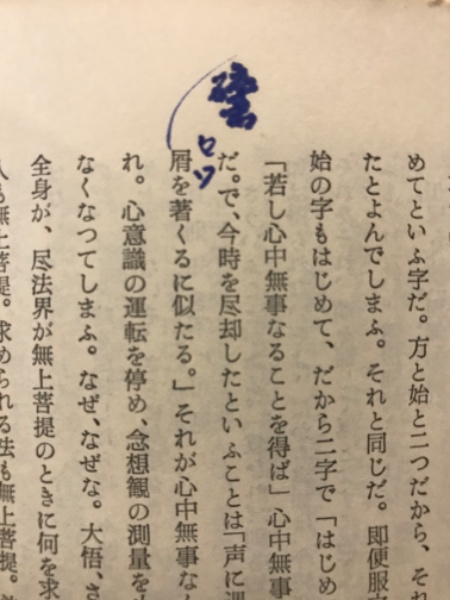 めてといふ字だ。方と始と二つだから、それ
たとよんでしまふ。それと同じだ。即便服
始の字もはじめて、だから二字で「はじめ
「若し心中無事なることを得ば」心中無事
だ。で、今時を尽却したといふことは「声に
屑を著くるに似たる。」それが心中無事な
れ。心意識の運転を停め、念想観の測量を
なくなつてしまふ。なぜ、なぜな。大悟、さ
全身が、尽法界が無上菩提のときに何を求
人も無上菩提。求められる法も無上菩提。